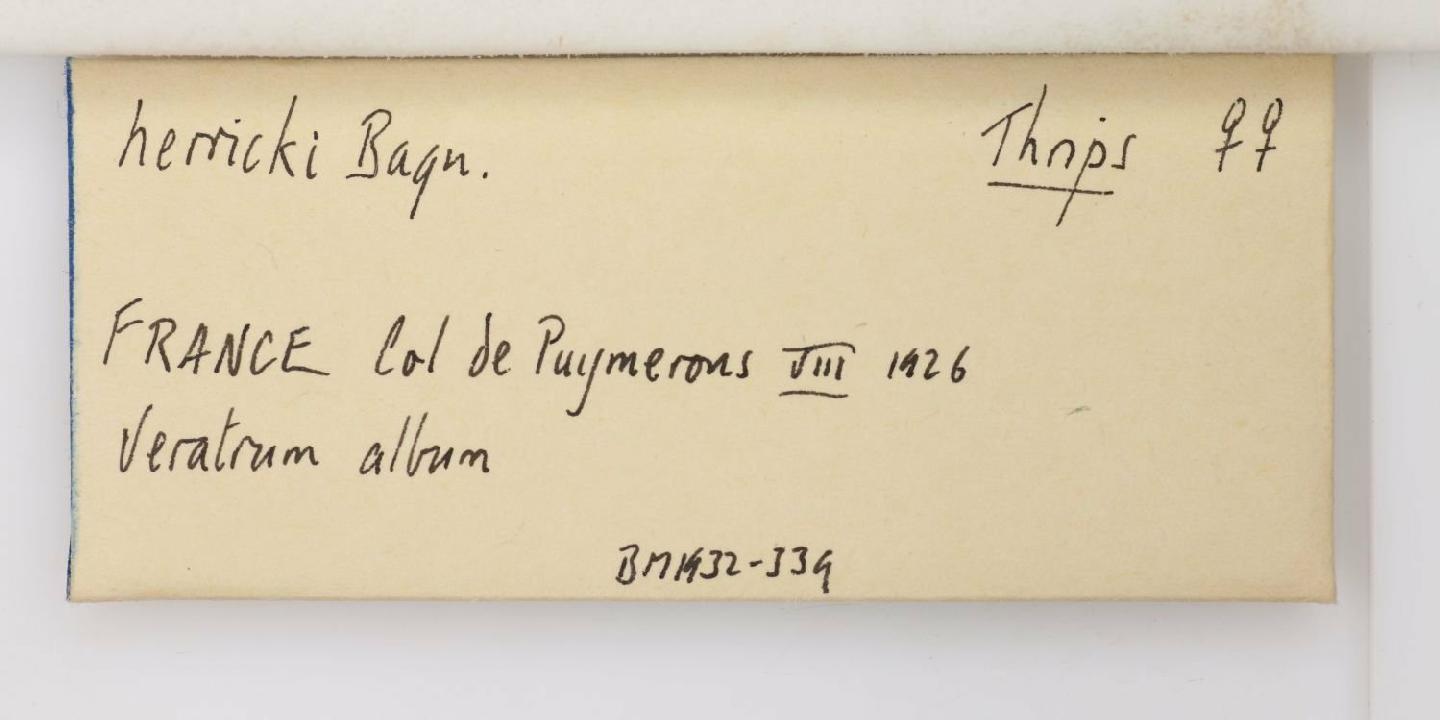 herricki Bagn. Thrips ♀♀
FRANCE Col de Puymerons VIII 1926
Veratrum album
BM1932-339